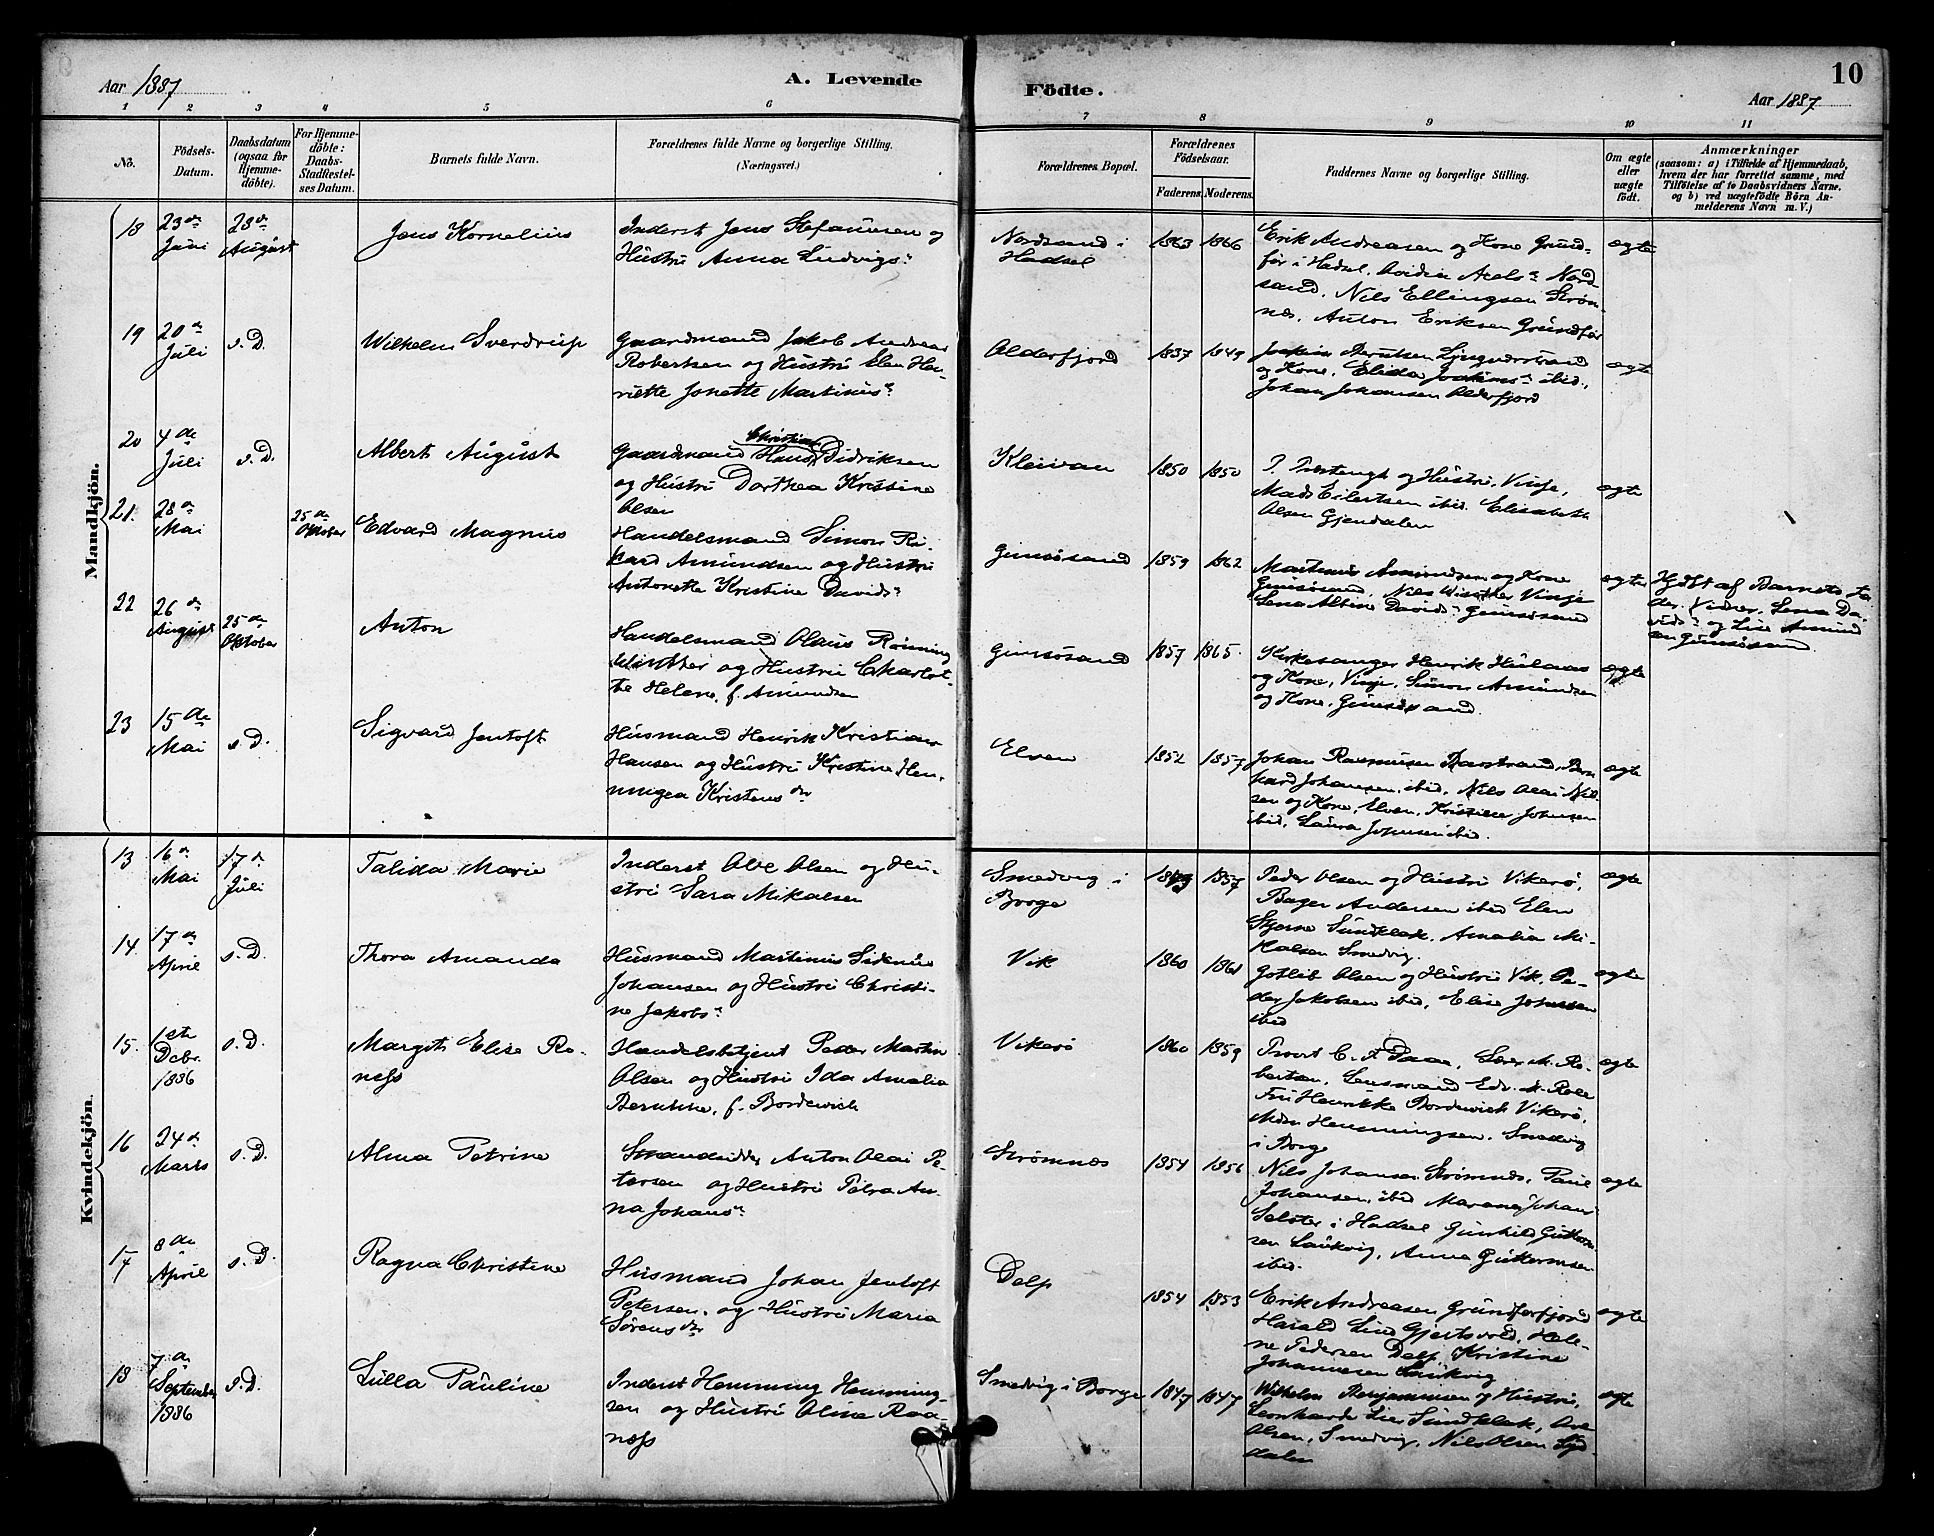 Aar 1887
A. Levende
Födte.
10
Aar 1887
1 2 3 4 5 6 7 8 9 10 11
No.
Födsels-Datum.
Daabsdatum (ogsaa for Hjemme-döbte).
For Hjemme-döbte: Daabs-Stadfæstel-ses Datum.
Barnets fulde Navn.
Forældrenes fulde Navne og borgerlige Stilling.
(Næringsvei.)
Forældrenes Bopæl.
Forældrenes Födselsaar.
Faderens. Moderens.
Faddernes Navne og borgerlige Stilling.
Om ægte eller uægte födt.
Anmærkninger
(saasom: a) i Tilfælde af Hjemmedaab,
hvem der har forrettet samme, med
Tilföielse af to Daabsvidners Navne.
og b) ved uægtefödte Börn An-
melderens Navn m. V.)
Mandkjön.
18
23de Juni
28de August
Jens Kornelius
Inderst Jens Stefanusen og
Hustru Anna Ludvigs
Nordsand i
Hadsel
1863 1866
Erik Andreasen og Kone Grund-
før i Hadsel, Axels Nord-
sand, Nils Ellingsen Strøm-
næs, Anton Eriksen Grundfør
ægte
19
20de Juli
s. D.
Wilhelm Sverdrup
Gaardmand Jakob Andreas
Robertsen og Hustru Elen Hen-
riette Jonette Martinus
Alderfjord
1837 1849
og Kone, Elida Joakims ibid.,
Johan Johansen Alderfjord
ægte
20
4de Juli
s. D.
Albert August
Christian
Gaardmand Hans Didriksen
og Hustru Dorthea Kristine
Olsen
Kleivan
1850 1850
P. Præstengh og Hustru, Vinje,
Mads Eilertsen ibid. Elisabeth
Olsen Gjendalen
ægte
21.
28de Mai
25de Oktober
Edvard Magnus
Handelsmand Simon Ri-
kard Amundsen og Hustru
Antonette Kristine Davids
Gimsøsand
1859 1862
Martinus Amundsen og Kone
Gimsøsand, Nils Winther Vinje
Lena Albine Davids Gimsøsand
ægte
Hjdbt af Barnets Fa-
der. Vidner, Lena Da-
vids og Lise Amund
sen Gimsøsand
22
26de August
25de Oktober
Anton
Handelsmand Olaus Rønning
Winther og Hustru Charlot-
te Helene, f. Amundsen
Gimsøsand
1857 1865.
Kirkesanger Henrik Huilaas
og Kone, Vinje. Simon Amundsen
og Kone, Gimsøsand.
ægte
23
15de Mai
s. D.
Sigvard Jentoft
Husmand Henrik Kristian
Hansen og Hustru Kristine Hen-
ningea Kristens dtr
Elven
1852 1857
Johan Rasmusen Barstrand, Bern
hard Johansen, ibid, Nils Olai Nil-
sen og Kone, Elven, Kristine Johnsen
ibid, Laura Johnsen ibid.
ægte
Kvindekjön.
13
16de Mai
17de Juli
Talida Marie
Inderst Ove Olsen og Hu-
stru Sara Mikalsen
Smedvig i
Borge
1857
Peder Olsen og Hustru Vikerø,
Andersen ibid Elen
Stjerne Sundklak, Amalia Mi-
kalsen Smedvig.
ægte
14
17de April
s. D.
Thora Amanda
Husmand Martinus Sidenius
Johansen og Hustru Christi-
ne Jakobs
Vik
1860 1861
Gotlieb Olsen og Hustru Vik, Pe-
der Jakobsen ibid, Elise Johnsen
ibid
ægte
15.
1ste Debr. 1886
s. D.
Margith Elise Ro-
ness
Handelsbetjent Peder Martin
Olsen og Hustru Ida Amalia
Bernikke, f. Bordewich
Vikerø
1860 1859
Provst C. F. Daae, Lærer M. Ro-
bertsen, Lensmand Edv. M. Roll
Fru Henrikke Bordewich Vikerø,
Henningsen, Smedvig
i Borge
ægte
16
24de Marts
s. D.
Alma Petrine
Strandsidder Anton Olai Pe-
tersen og Hustru Petra An-
na Johans
Strømnæs
1854 1856
Nils Johansen Strømnæs, Paul
Johansen, ibid Maren Johans
Selster i Hadsel Gunhild Guttorm
sen Laukvig, Anna Guttormsen
ibid.
ægte
17
8de April
s. D.
Ragna Christine
Husmand Johan Jentoft
Petersen, og Hustru Maria
Sørens dtr
Delp
1854 1853
Erik Andreasen Grundforfjord
Harald Lind Gjertsvold, Hele-
ne Pedersen Delp Kristine
Johannesen Laukvig
ægte
18
7de September 1886
s. D.
Lulla Pauline
Inderst Hemming Hemming-
sen og Hustru Oline Roa-
næss
Smedvig i Borge
1847 1847
Wilhelm Benjaminsen og Hustru,
Leonharde Lier Sundklak, Ove
Olsen, Smedvig, Nils Olsen Lyd-
dalen
ægte